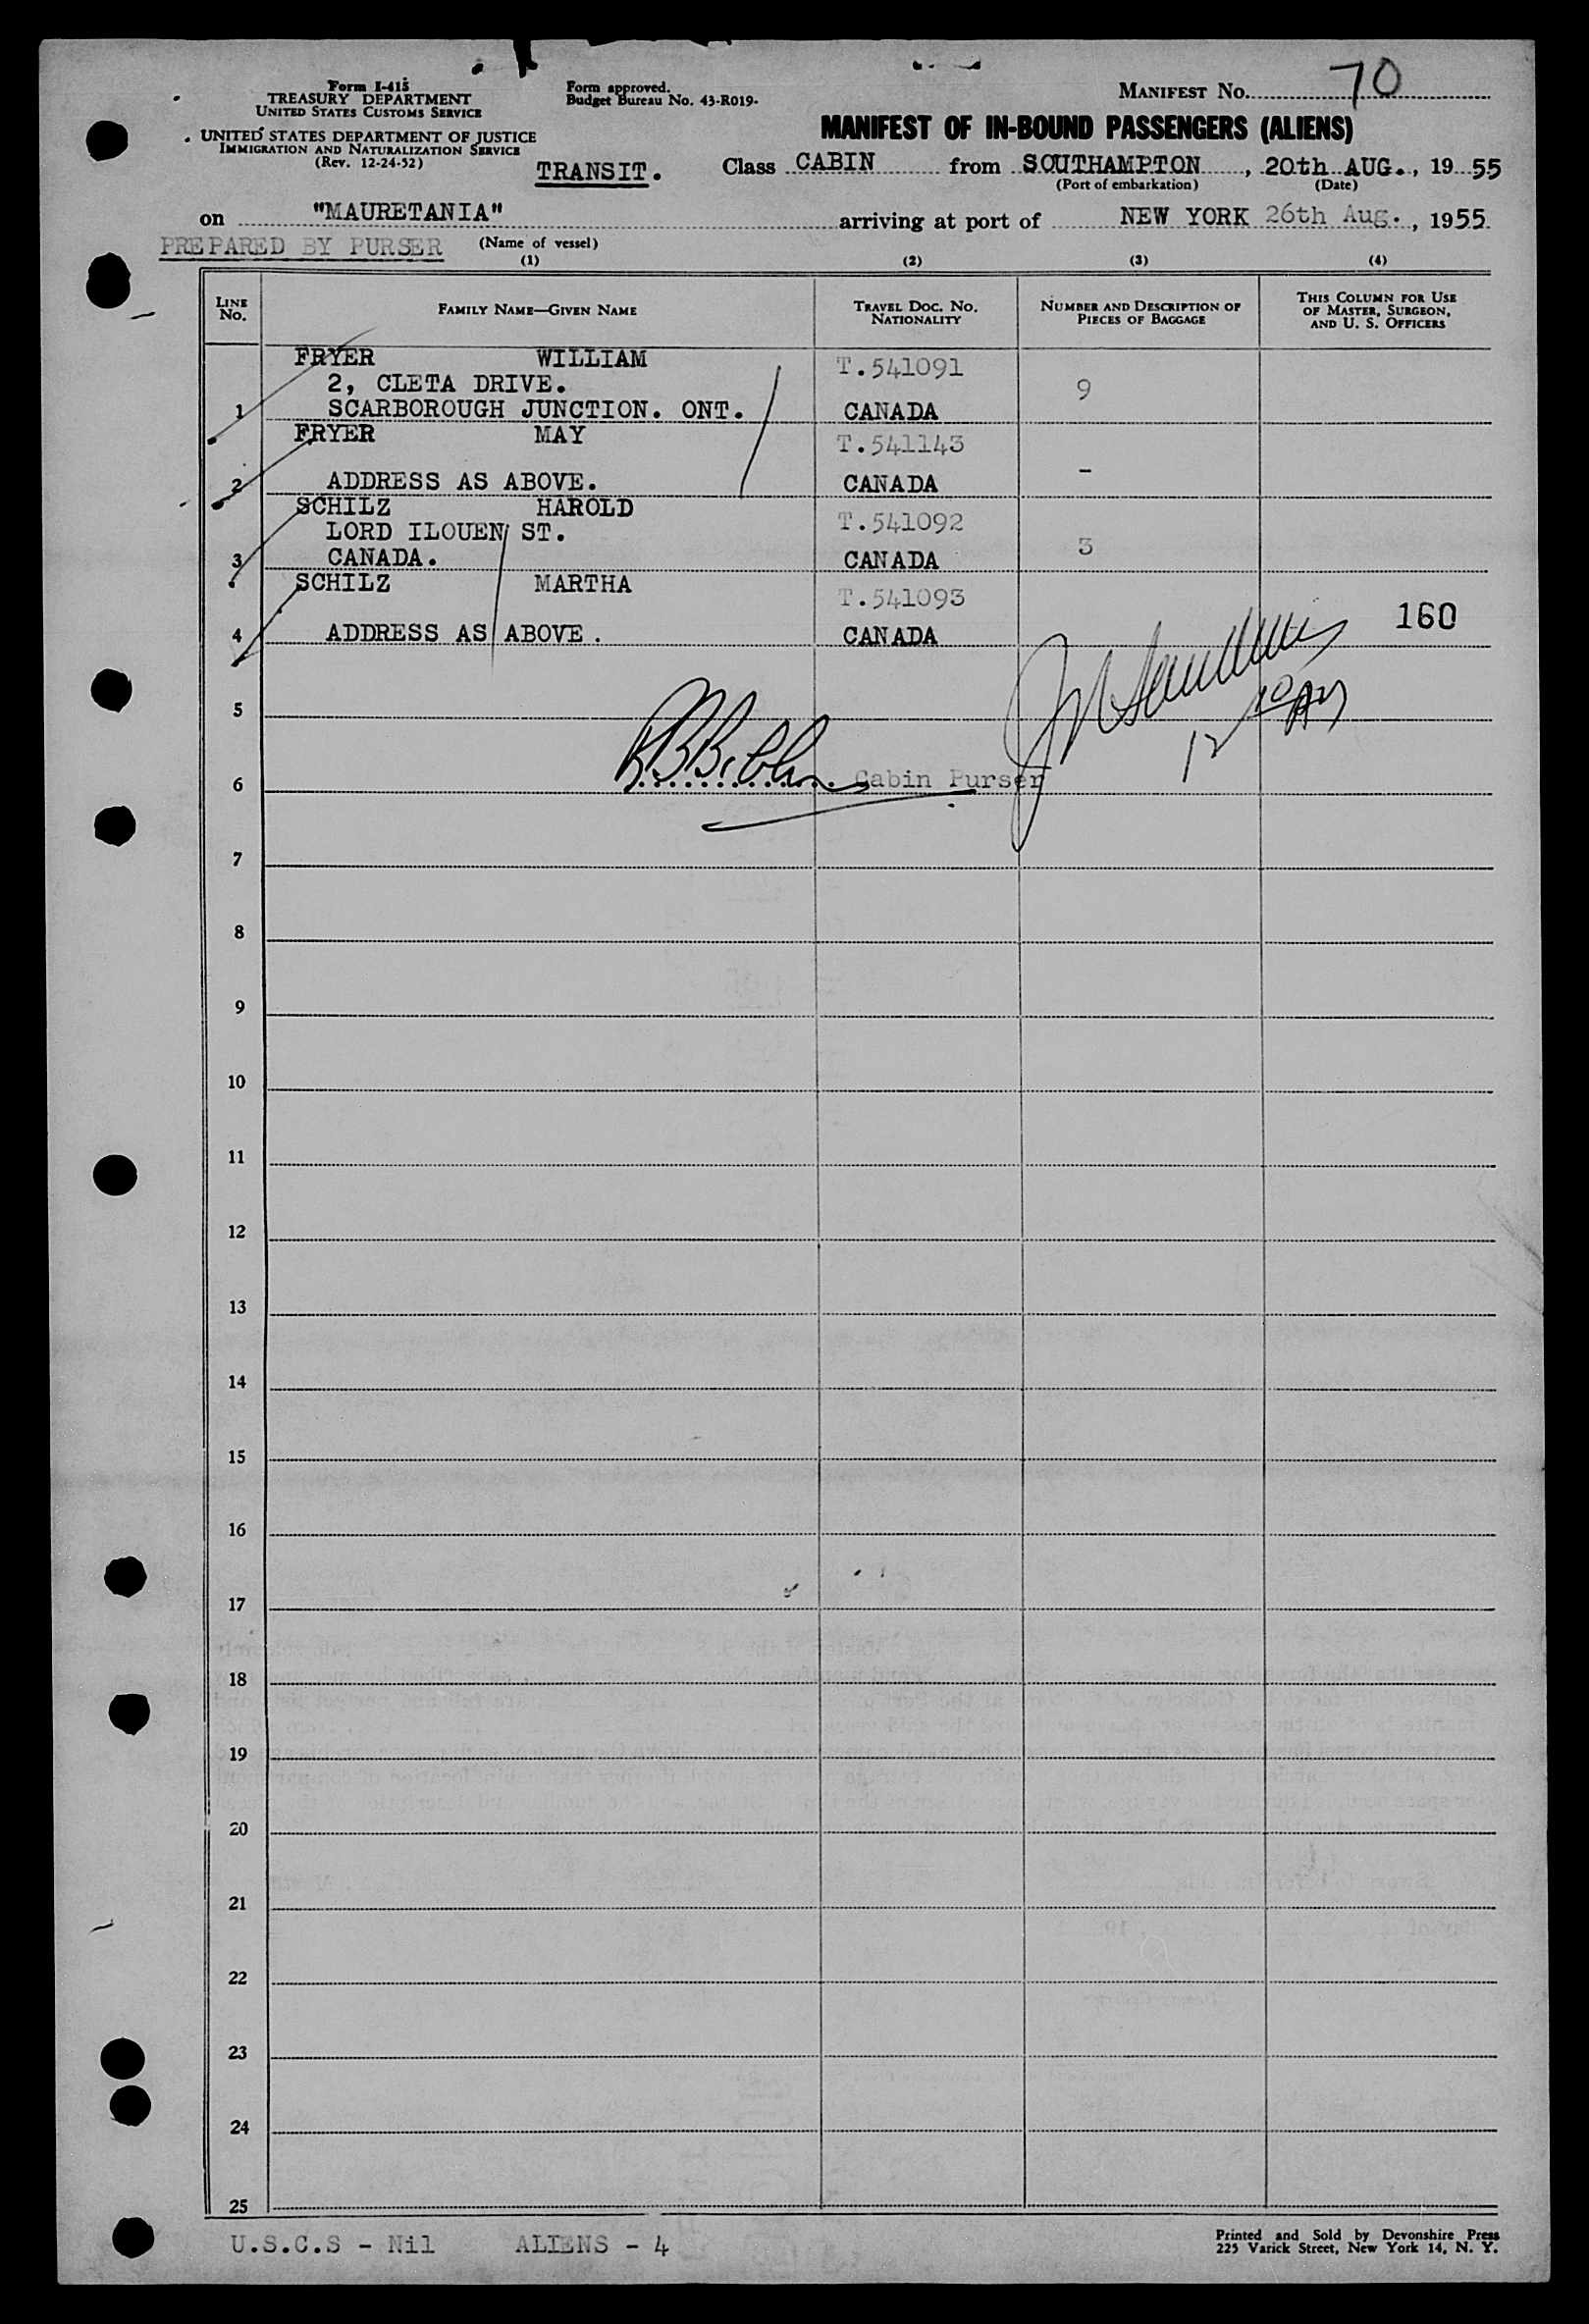 Form I-415
TREASURY DEPARTMENT
UNITED STATES CUSTOMS SERVICE
UNITED STATES DEPARTMENT OF JUSTICE
IMMIGRATION AND NATURALIZATION SERVICE
(Rev. 12-24-52)
Form approved.
Budget Bureau No. 43-R019.
MANIFEST No. 70
MANIFEST OF IN-BOUND PASSENGERS (ALIENS)
TRANSIT. Class CABIN from SOUTHAMPTON, 20th AUG., 1955
(Port of embarkation) (Date)
on "MAURETANIA" arriving at port of NEW YORK 26th Aug., 1955
PREPARED BY PURSER (Name of vessel)
(1) (2) (3) (4)
LINE No. FAMILY NAME—GIVEN NAME TRAVEL DOC. No. NATIONALITY NUMBER AND DESCRIPTION OF PIECES OF BAGGAGE THIS COLUMN FOR USE OF MASTER, SURGEON, AND U. S. OFFICERS
FRYER WILLIAM T.541091
2, CLETA DRIVE. 9
1 SCARBOROUGH JUNCTION. ONT. CANADA
FRYER MAY T.541143
-
2 ADDRESS AS ABOVE. CANADA
SCHILZ HAROLD T.541092
LORD ILOUEN ST. 3
3 CANADA. CANADA
SCHILZ MARTHA T.541093
160
4 ADDRESS AS ABOVE. CANADA
5
6 Cabin Purser
7
8
9
10
11
12
13
14
15
16
17
18
19
20
21
22
23
24
25
U.S.C.S - Nil ALIENS - 4
Printed and Sold by Devonshire Press
225 Varick Street, New York 14, N. Y.